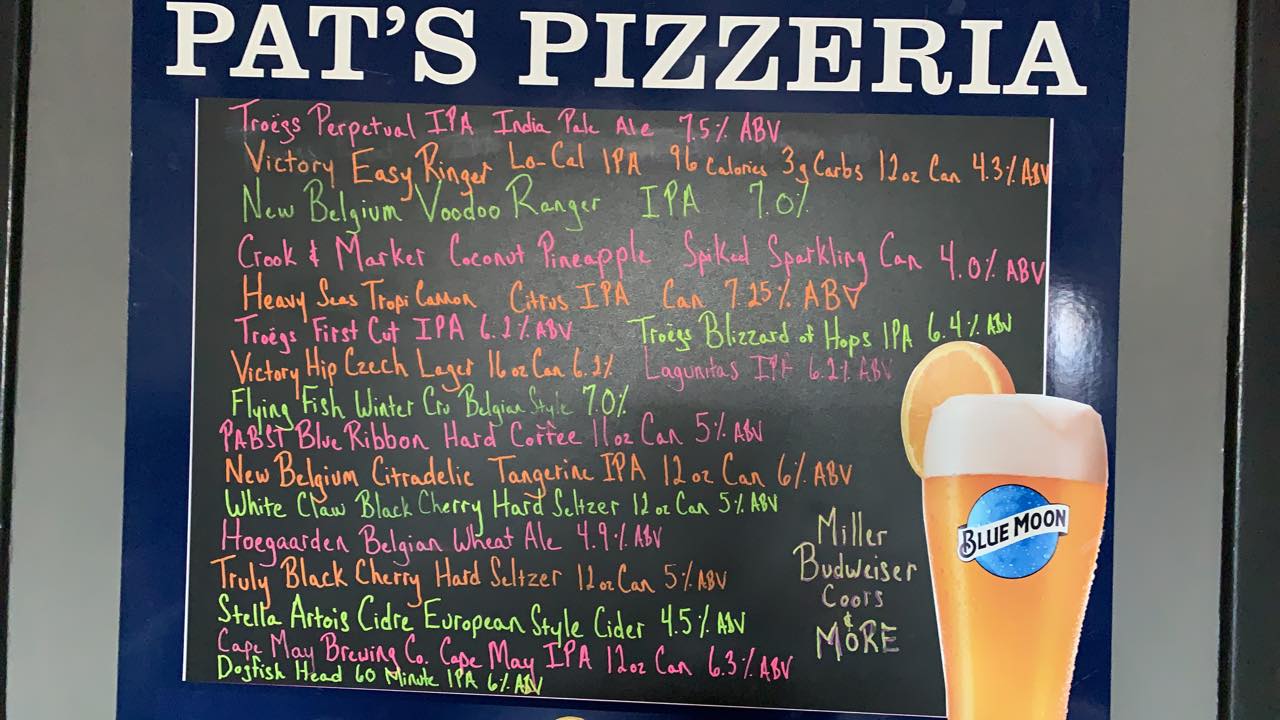 PAT'S PIZZERIA
Troëgs Perpetual IPA India Pale Ale 7.5% ABV
Victory Easy Ringer Lo-Cal IPA 96 Calories 3g Carbs 12oz Can 4.3% ABV
New Belgium Voodoo Ranger IPA 7.0%
Crook & Market Coconut Pineapple Spiked Sparkling Can 4.0% ABV
Heavy Seas Tropi Cannon Citrus IPA Can 7.25% ABV
Troëgs First Cut IPA 6.2% ABV Troëgs Blizzard of Hops IPA 6.4% ABV
Victory Hip Czech Lager 16oz Can 6.2% Lagunitas IPA 6.2% ABV
Flying Fish Winter Cru Belgian Style 7.0%
PABST Blue Ribbon Hard Coffee 11oz Can 5% ABV
New Belgium Citradelic Tangerine IPA 12oz Can 6% ABV
White Claw Black Cherry Hard Seltzer 12oz Can 5% ABV
Hoegaarden Belgian Wheat Ale 4.9% ABV
Truly Black Cherry Hard Seltzer 12oz Can 5% ABV
Stella Artois Cidre European Style Cider 4.5% ABV
Cape May Brewing Co. Cape May IPA 12oz Can 6.3% ABV
Dogfish Head 60 Minute IPA 6% ABV
Miller
Budweiser
Coors
&
MORE
BLUE MOON